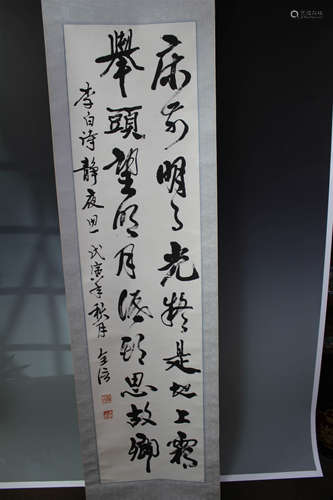 床前明月光疑是地上霜
舉頭望明月低頭思故鄉
李白诗静夜思一戊寅年秋月